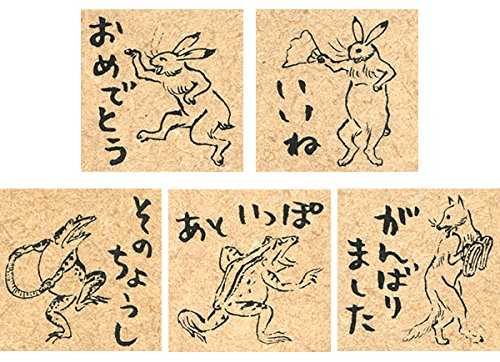 おめでとう
いいね
その
ちょうし
あといっぽ
がんばり
ました